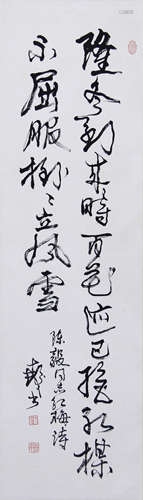 隆冬到来時百花迹已絶紅楳
不屈服樹〻立風雪
陳毅同志紅梅詩